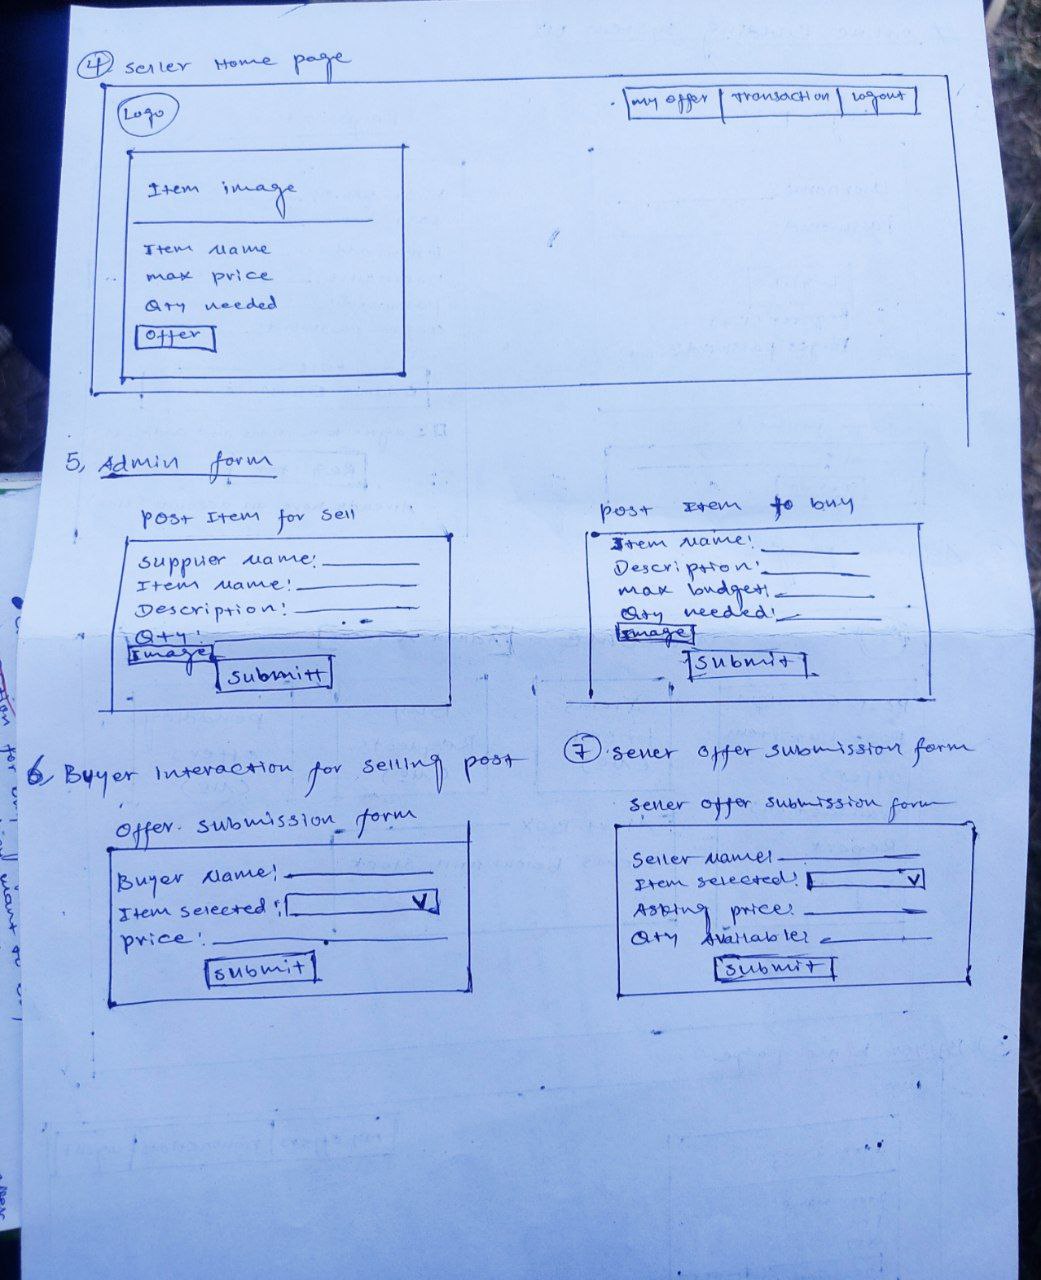 4 Seller Home page
Logo
my offer Transaction Logout
Item image
Item Name
max price
Qty needed
Offer
5, Admin form
post Item for Sell
Supplier Name:
Item Name:
Description:
Qty:
Image
Submitt
post Item to buy
Item Name:
Description:
max budget:
Qty needed:
Image
Submit
6, Buyer Interaction for selling post
Offer Submission form
Buyer Name:
Item selected:
price:
Submit
7 Seller Offer Submission form
Seller Offer Submission form
Seller Name:
Item selected:
Asking price:
Qty Available:
Submit